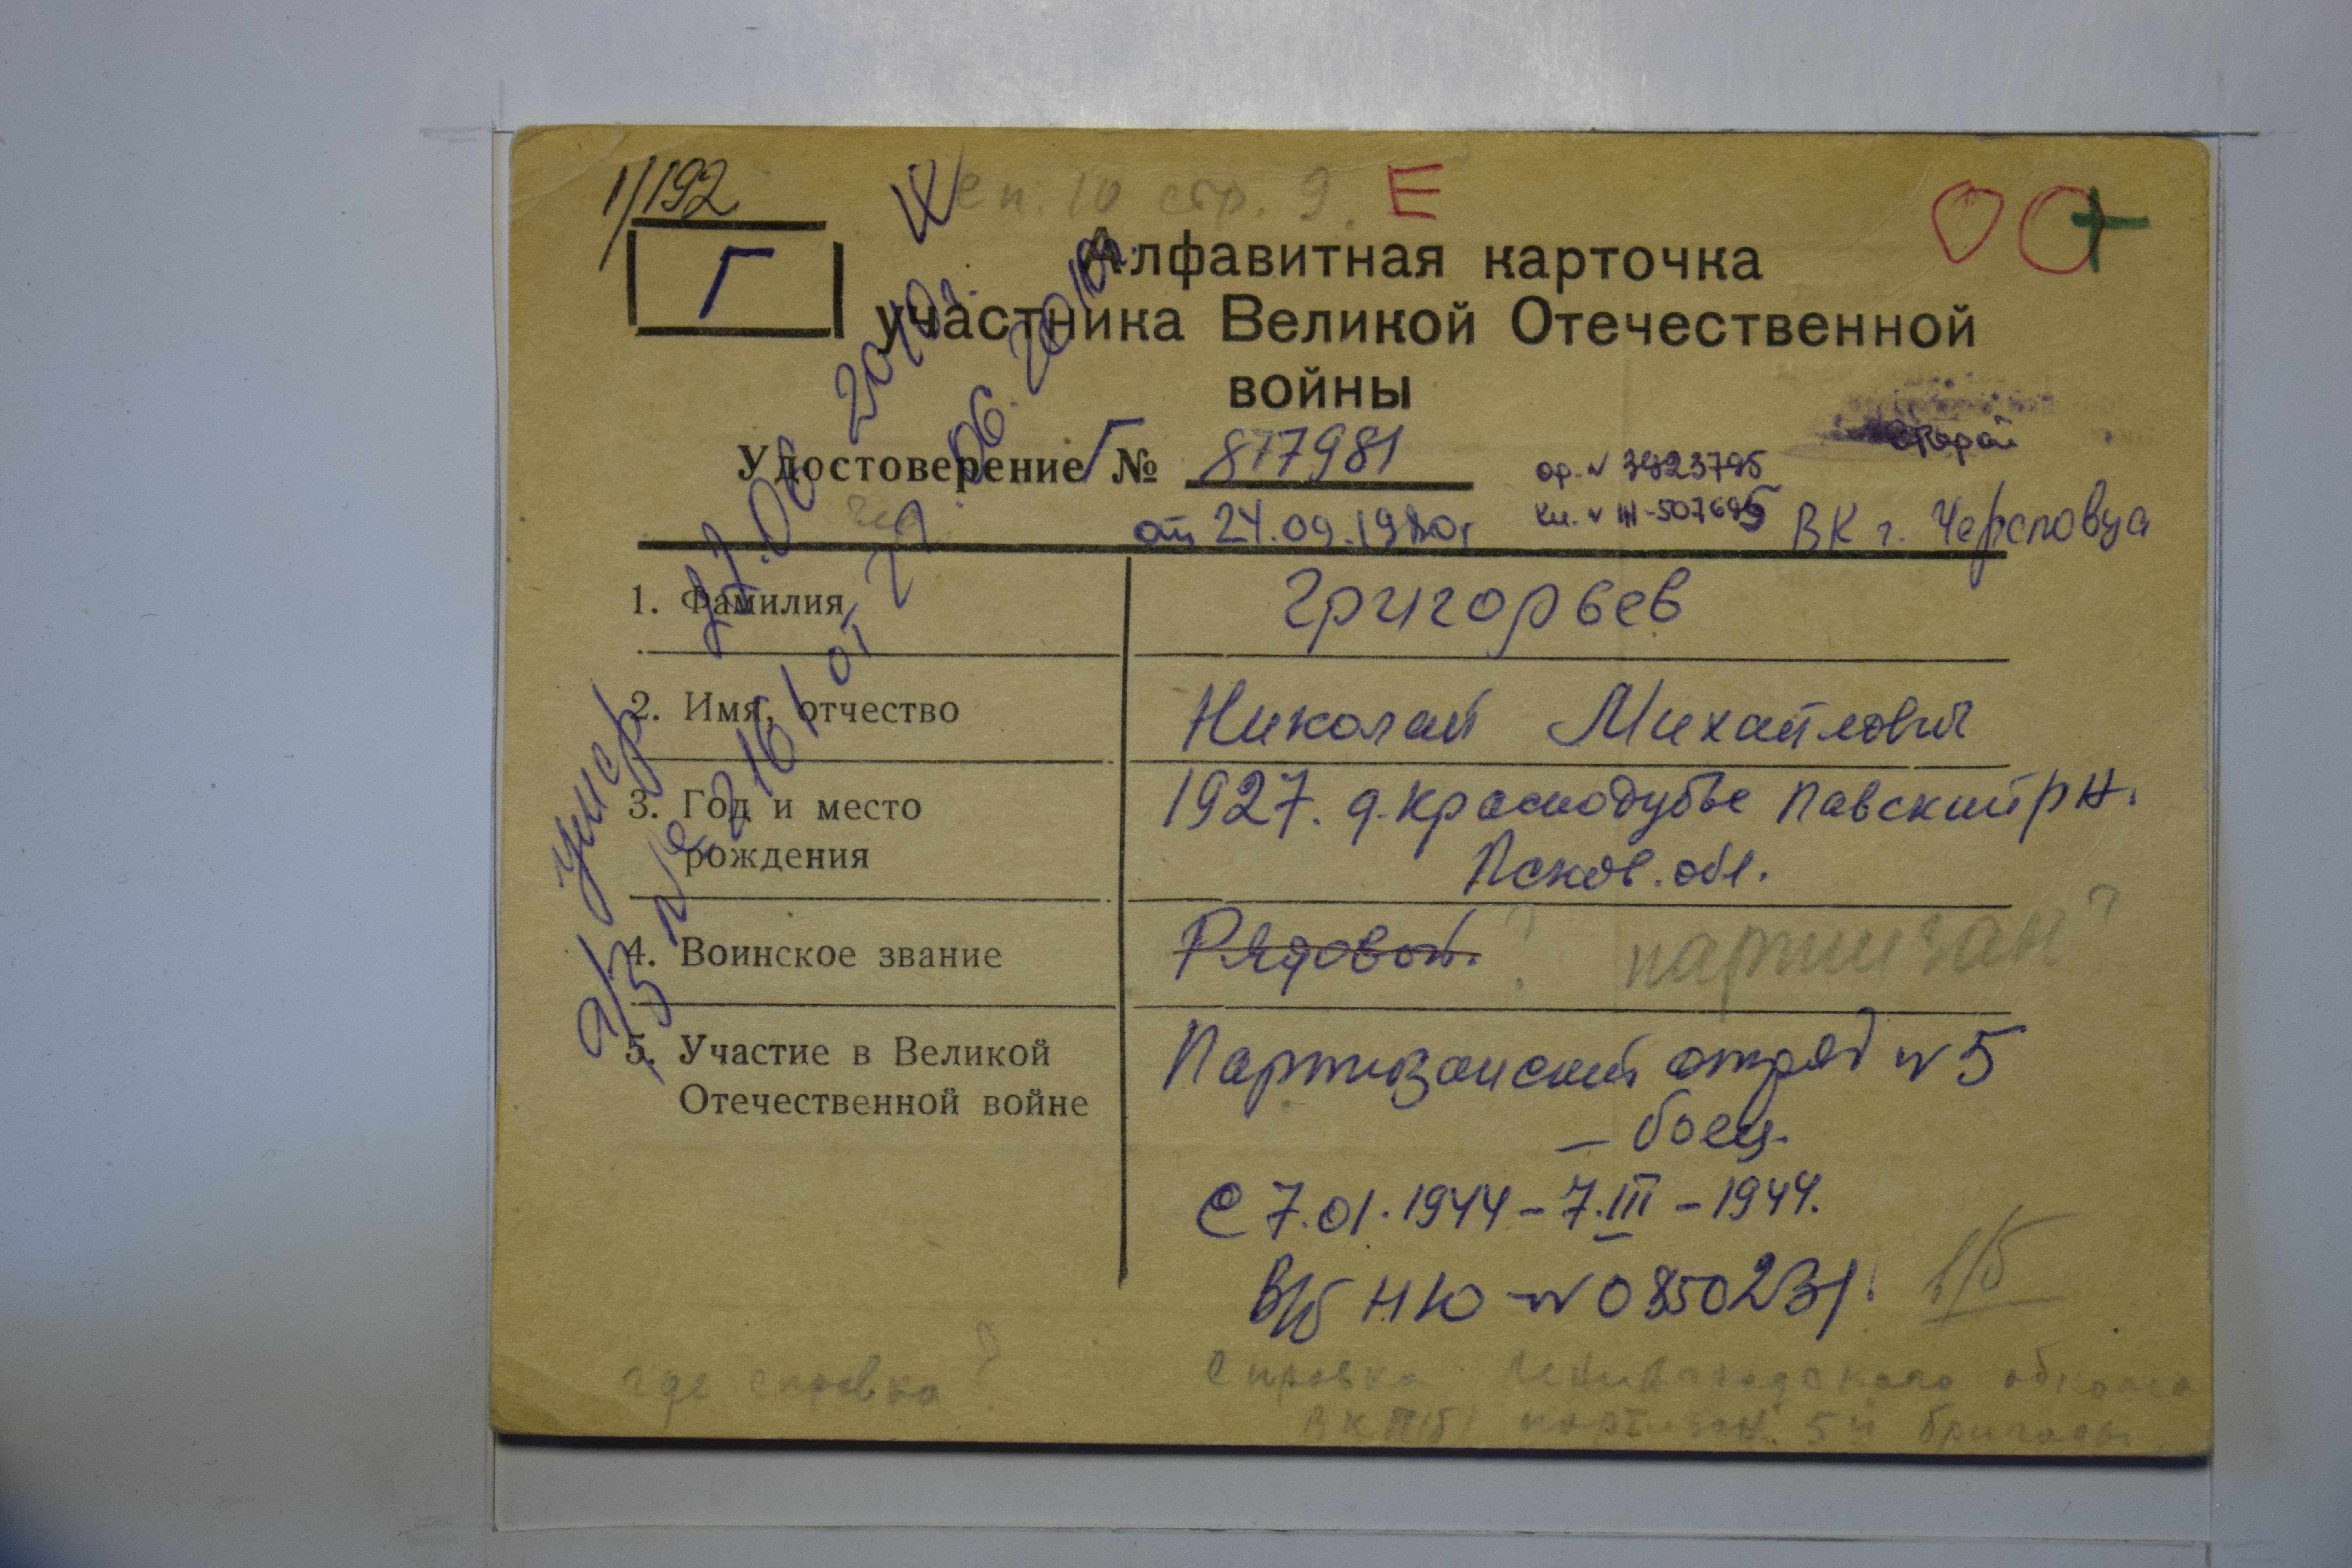 1/192
сп. 10 стр. 9. Е
Г
Алфавитная карточка
участника Великой Отечественной
войны
Удостоверение Г № 877981
от 24.09.1980г
ор. №
кн. № III-507695
второй
ВК г. Череповца
1. Фамилия Григорьев
2. Имя, отчество Николай Михайлович
3. Год и место
рождения
1927. д. Краснодубье Павский р-н.
Псков. обл.
4. Воинское звание Рядовой. ? партизан?
5. Участие в Великой
Отечественной войне
Партизанский отряд № 5
– боец.
С 7.01.1944 – 7.III – 1944.
В/б НЮ – № 0850231. в/б
где справка?
Справка Ленинградского обкома
ВКП(б) партизан. 5й бригады
умер 2010г.
а/з № 2161 от 22.06.2010г.